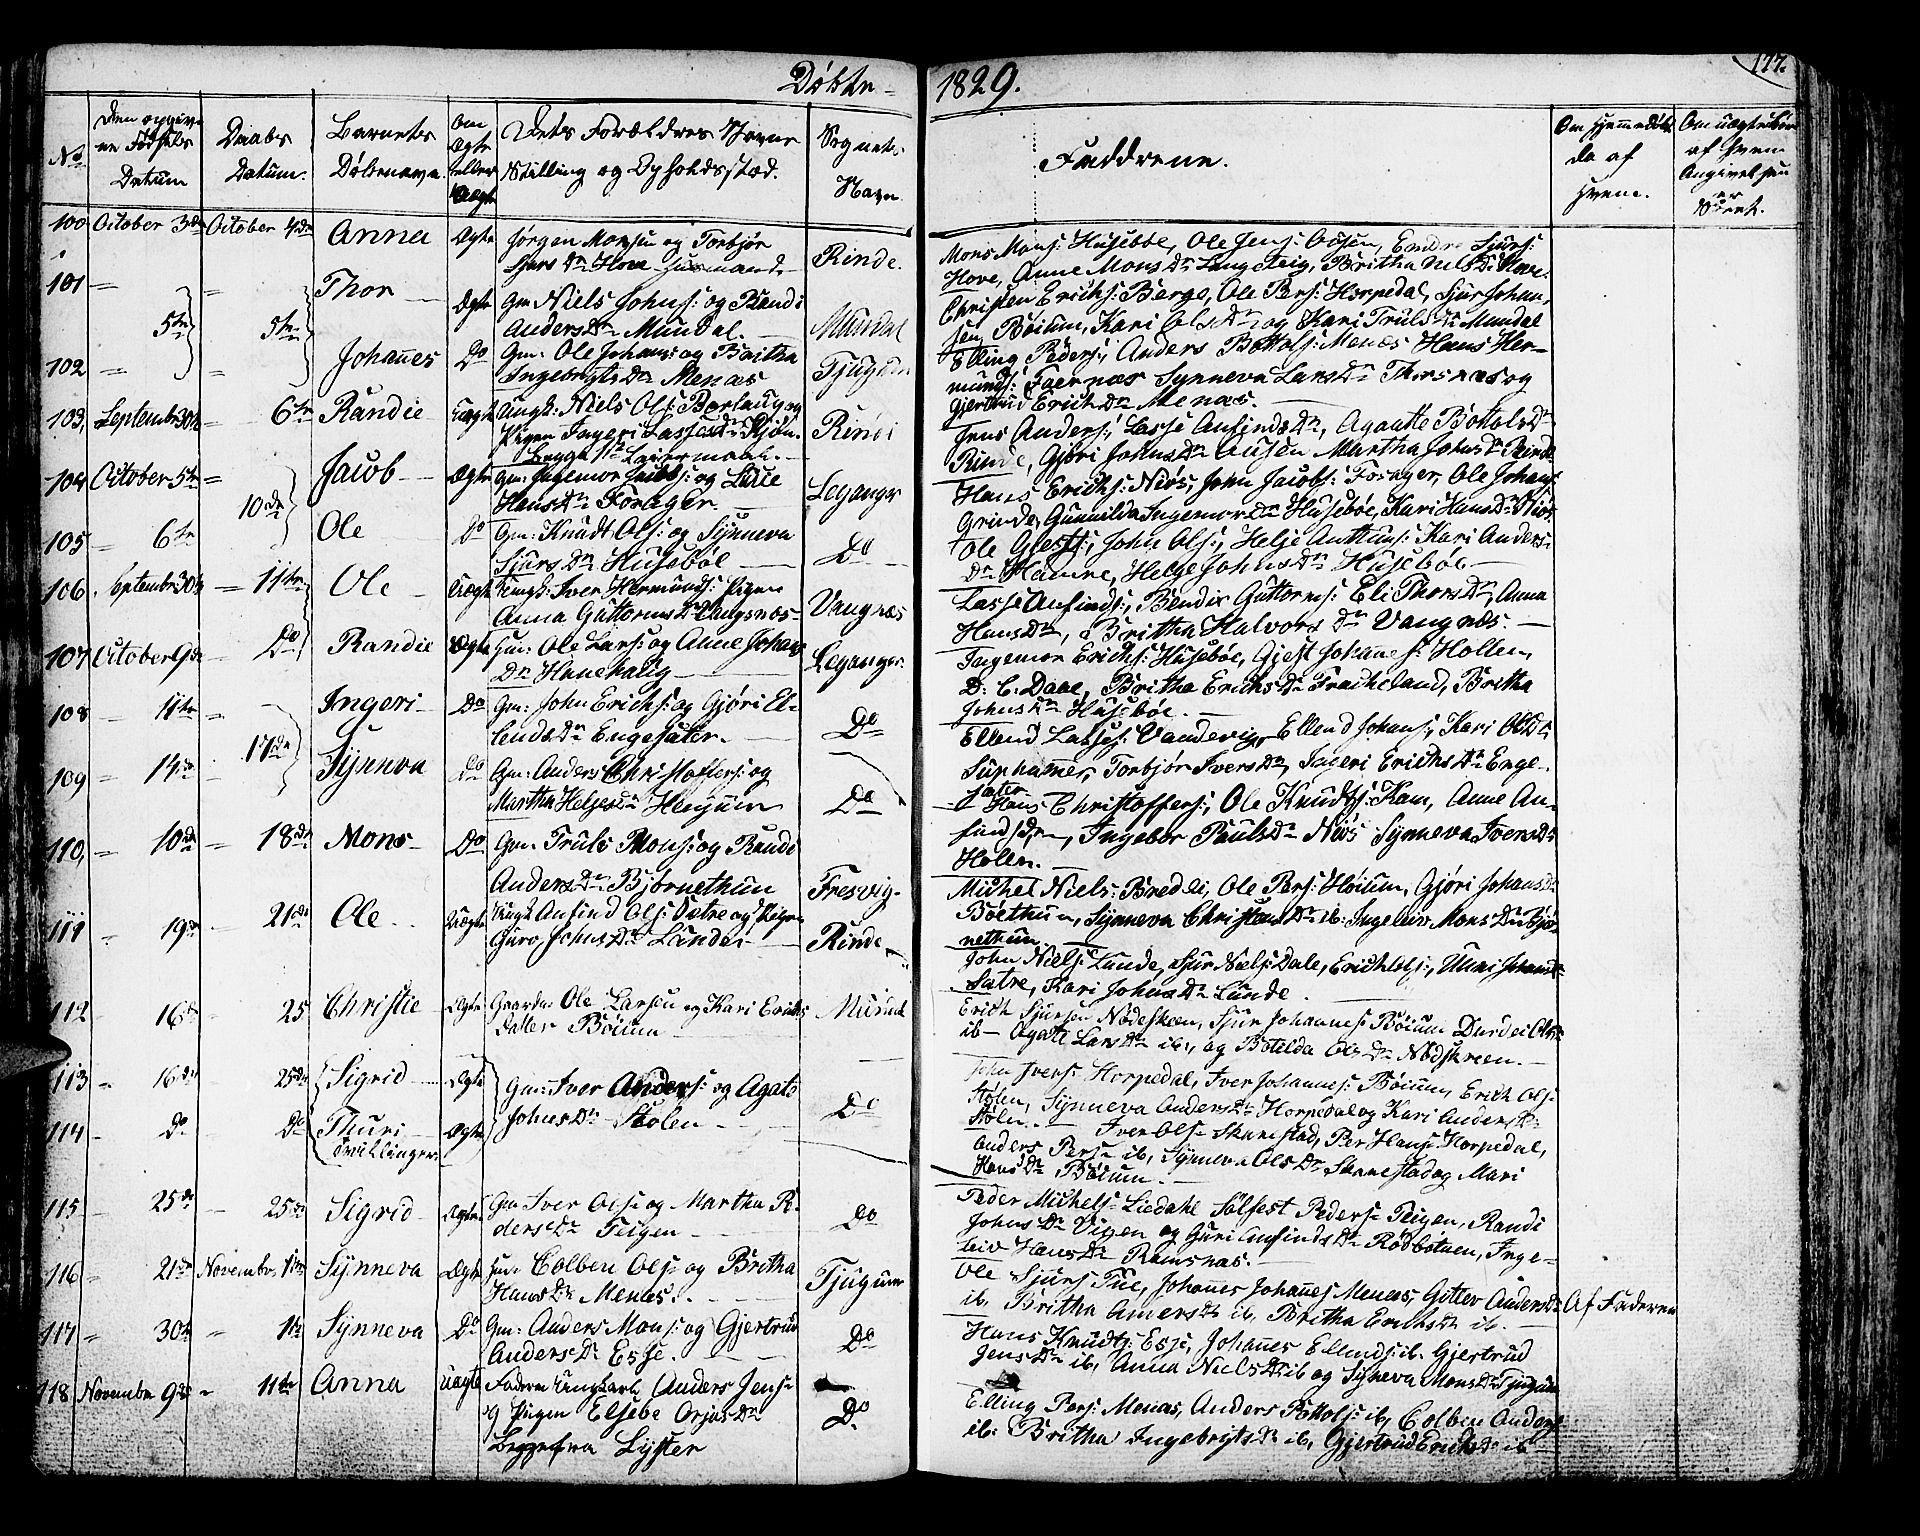 Døbte 1829.
177.
No
Den opgivne Fødsels Datum
Daabs Datum.
Barnets Døbenavn.
Om Ægte eller Uægte
Dets Forældres Navne Stilling og Opholdsstæd.
Sognets Navn
Faddrene.
Om Hjemmedøbt da af Hvem.
Om uægte af Hvem Angivelsen er Skeet.
100 October 3de October 4de Anna Ægte Jørgen Monsen og Torbjør
Sjurs Dr Hove Huusmand Rinde.
Mons Mons: Husebøe, Ole Jens: Endre Sjurs:
Hove, Anne Mons Dr Langeteig, Britha Nils Dr Hove.
101 5te 5te Thor Ægte Gm Niels Johns: og Randi
Anders Dr Mundal Mundal
Christen Erichs: Berge, Ole Pers: Horpedal, Sjur Johan-
sen Bøium, Kari Ols Dr og Kari Truls Dr Mundal
102 Johannes Do Gm: Ole Johans: og Britha
Ingebrigts Dr Menæs Tjugum
Elling Peders: Anders Bottols: Menæs Hans Her-
munds: Færnæs Synneva Lars Dr Thorsnæs og
Gjertrud Erichs Dr Menæs
103, Septembr 30te 6te Randie Uægte Ungk: Niels Ols: Berlaug og
Pigen Ingeri Lasses Dr
Begge 1ste Leiermaal. Rindi
Jens Anders: Lasse Anfinds Dr, Agaatte Bottols Dr
Rinde, Gjøri Johns Dr Martha Johns Dr Rinde
104 October 5te 10de Jacob Ægte Gm: Ingemor Jacobs: og
Hans Dr Forager Leganger
Hans Erichs: Niøs, John Jacobs: Forager, Ole Johans:
Grinde, Gunnilda Ingemor Dr Husebøe, Kari Hans Dr Niøs
105 6te Ole Do Gm: Knudt Ols: og Synneva
Sjurs Dr Husebøe Do
Ole Giests: John Ols:, Helje Kari Anders
Dr Hamre, Helge Johns Dr Husebøe
106 Septembr 30te 11te Ole Uægte Ungk: Iver Hermunds: Pigen
Anna Guttorms Dr Vangsnæs Vangnæs
Lasse Anfinds:, Bendix Guttorms: Eli Thors Dr, Anna
Hans Dr, Britha Halvors Dr Vangnæs.
107 October 9de Do Randie Ægte Gm: Ole Lars: og Anne Johans
Dr Hanehaug Leganger.
Ingemor Erichs: Husebøe, Gjest Johannes: Hollen,
D: C: Daae, Britha Erichs Dr Britha
Johns Dr Husebøe.
108 11te 17de Ingeri Do Gm: John Erichs: og Gjøri El-
lends Dr Engesæter. Do
Ellend Lasses: Vandevig, Ellend Johans:, Kari Ols Dr
Suphammer, Torbjør Ivers Dr, Ingeri Erichs Dr Enge-
sæter
109 14de Synneva Do Gm: Anders Christoffers: og
Martha Heljes Dr Henjum Do
Hans Christoffers:, Ole Knudts: Anne An-
finds Dr, Ingebor Pauls Dr Niøs Synneva Ivers Dr
Holen.
110, 10de 18de Mons Do Gm: Truls Mons: og Randi
Anders Dr Bjørnethun Fresvig
Michel Niels: Bredei, Ole Pers: Høium, Gjøri Johans Dr
Bøethun, Synneva Christens Dr ib: Ingelev Mons Dr Bjø-
nethun.
111 19de 21de Ole Uægte Ungk Anfind Ols: Sætre og Pigen
Guro Johns Dr Lunde Rinde
John Niels: Lunde, Sjur Niels: Dale, Erich Ols:,
Sætre, Kari Johns Dr Lunde.
112 16de 25 Christie Ægte Gaardm: Ole Larsen og Kari Erichs
Datter Bøium Mundal
Erich Sjursen Nødeskeen, Sjur Johannes: Bøium Durdei Ols Dr
ib Agate Lars Dr ib:, og Botilda Ols Dr Nødskreen.
113 16de 25de Sigrid Ægte Gm: Iver Anders: og Agate
Johns Dr Stølen Do
John Ivers: Horpedal, Iver Johannes: Bøium, Erich Ols:
Stølen, Synneva Anders Dr Horpedal og Kari Anders Dr
Stølen.
114 do Do Thuri Ægte
Tvillinger
Iver Ols: Skarestad, Per Hans: Horpedal,
Anders Pers: ib, Synneva Ols Dr Skarestad og Mari
Hans Dr Bøium.
115 25de 25de Sigrid Ægte Gm Iver Ols: og Martha Pe-
ders Dr Teigen Do
Peder Michels: Liedahl Sølfest Peders: Teigen, Randi
Johns Dr Vigen og Guri Anfinds Dr Rødbotnen, Inge-
leiv Hans Dr Ramsnæs.
116 21de Novembr 1ste Synneva Ægte Gm: Colben Ols: og Britha
Hans Dr Menæs. Tjugum
Ole Sjurs: Tue, Johannes Johannes: Menæs, Gitlev Anders Dr
ib, Britha Anders Dr ib, Britha Erichs Dr ib. Af Faderen
117 30te 1ste Synneva Do Gm: Anders Mons: og Gjertrud
Anders Dr Esse. Do
Hans Knudts: Esse, Johannes Ellends: ib. Gjertrud
Jens Dr ib, Anna Niels Dr ib og Synneva Mons Dr Tjugum
118 Novembr 9de 11te Anna Uægte Faderen Ungkarl Anders Jens:
og Pigen Elsebe Orjas Dr
Begge fra Lyster Do
Elling Pers: Menæs, Anders Bottols: ib, Colben Anders:
ib: Britha Ingebrigts Dr ib, Gjertrud Erichs Dr ib